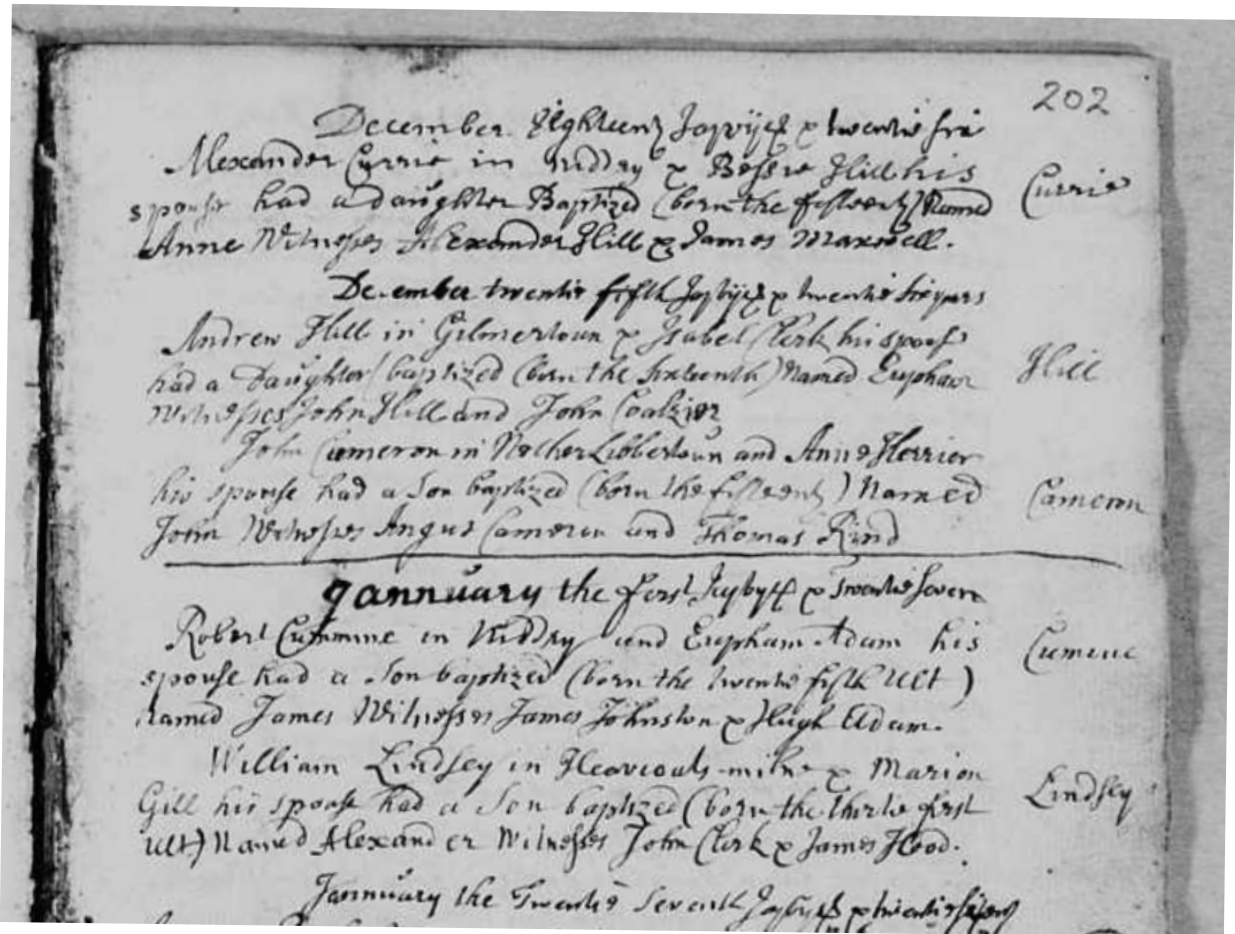 202
December Eighteenth Jajvijc & twentie six
Alexander Currie in Niddry & Bessie Hill his
spouse had a daughter Baptized (born the fifteenth) Named
Currie
Anne Witnesses Alexander Hill & James Maxwell.
December twentie fifth Jajvijc & twentie six years
Andrew Hill in Gilmertoun & Isabel Clerk his spous
had a Daughter baptized (born the sixteenth) Named Eupham
Hill
Witnesses John Hill and John Coalzier
John Cameron in Nether Libbertoun and Anne Herrier
his spouse had a Son baptized (born the fifteenth) Named
Cameron
John Witnesses Angus Cameron and Thomas Rind
Jannuary the first Jajvijc & twentie seven
Robert Cummine in Niddry and Eupham Adam his
Cumine
spouse had a Son baptized (born the twentie fifth Ult)
named James Witnesses James Johnston & Hugh Adam.
William Lindsey in & Marion
Lindsey
Gill his spouse had a Son baptized (born the thirtie first
Ult) Named Alexander Witnesses John Clerk & James Hood.
Jannuary the Twentie Seventh Jajvijc & twentie seven